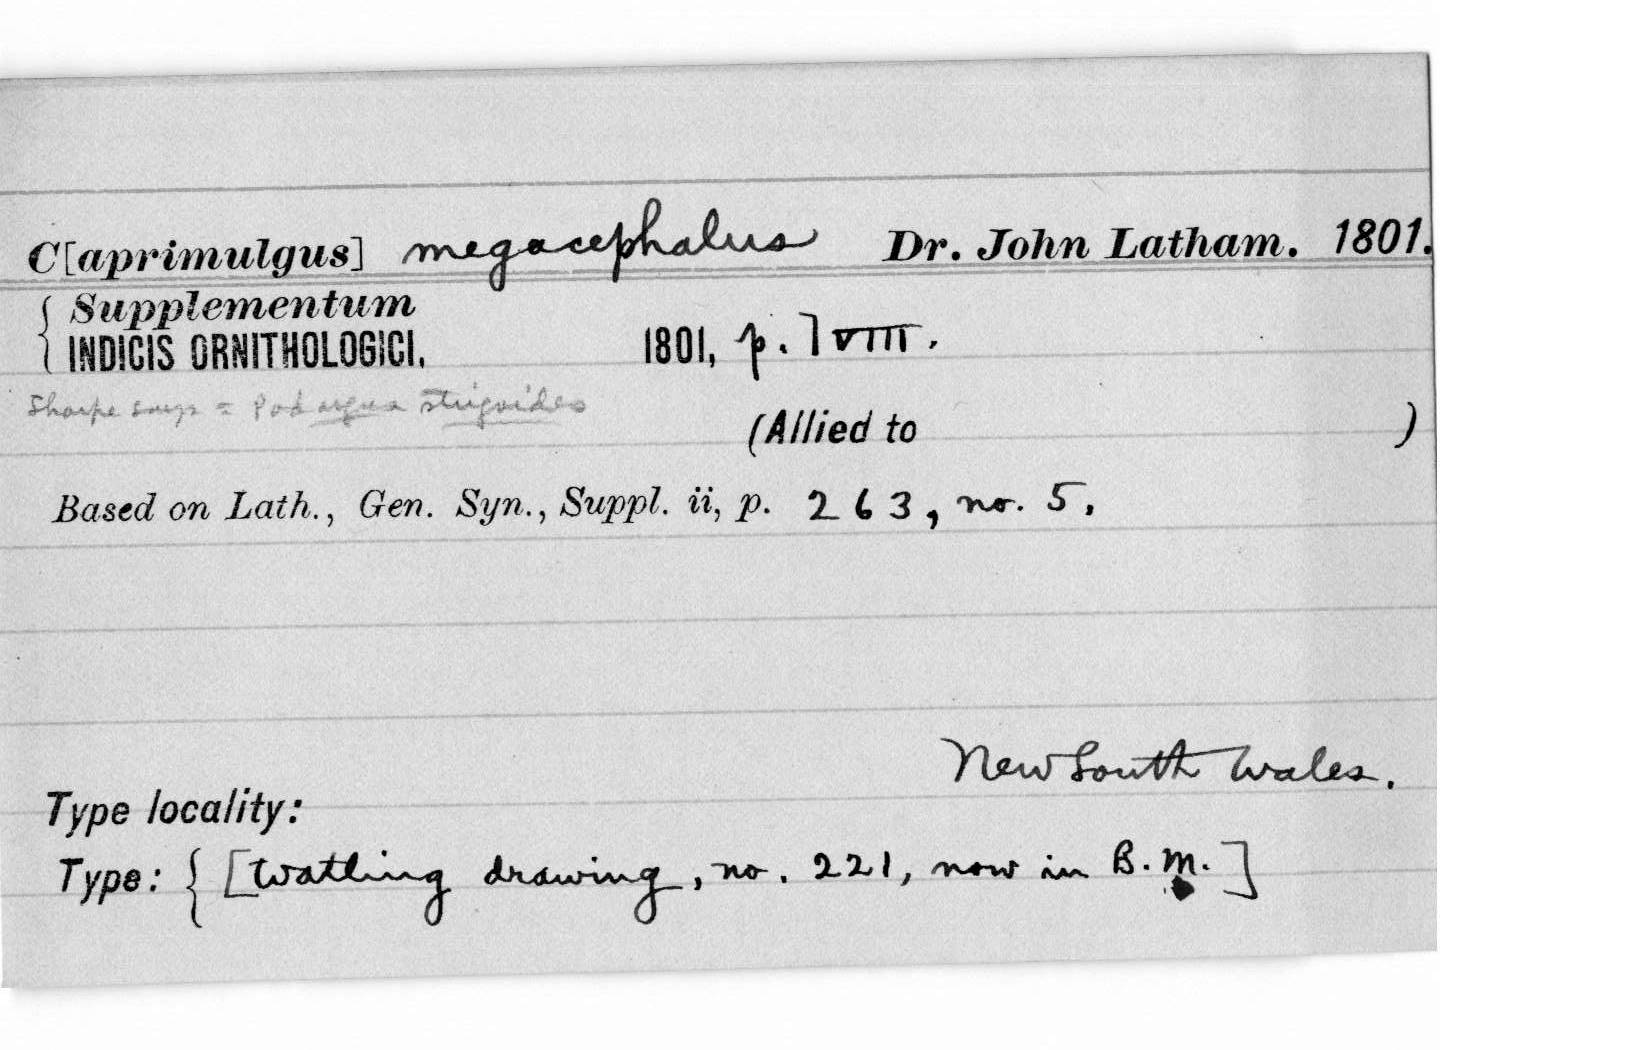 C[aprimulgus] megacephalus Dr. John Latham. 1801.
{ Supplementum
INDICIS ORNITHOLOGICI, 1801, p. lviii.
Sharpe says = Podargus strigoides
(Allied to )
Based on Lath., Gen. Syn., Suppl. ii, p. 263, no. 5.
New South Wales.
Type locality:
Type: { [Watling drawing, no. 221, now in B.M.]